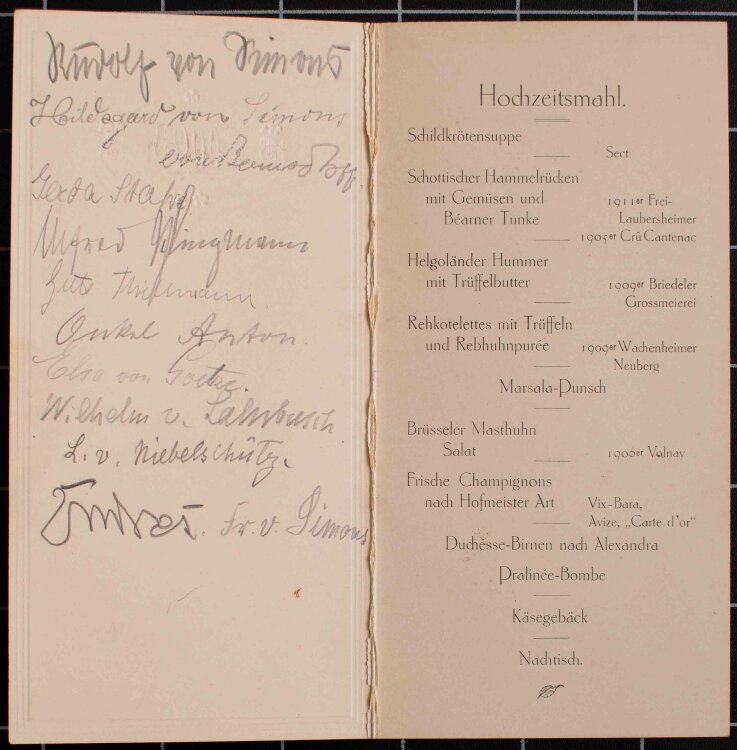 Rudolf von Simons
Hildegard von Simons
von Bernstorff.
Gerda
Alfred Klingmann
Onkel Anton.
Elsa von Goetze.
Wilhelm v. Lahrbusch
L. v. Niebelschütz.
Fr. v. Simons
Hochzeitsmahl.
Schildkrötensuppe
Sect
Schottischer Hammelrücken
mit Gemüsen und
Béarner Tunke
1911er Frei-
Laubersheimer
1905er Crû Cantenac
Helgoländer Hummer
mit Trüffelbutter
1909er Briedeler
Grossmeierei
Rehkotelettes mit Trüffeln
und Rebhuhnpurée
1909er Wachenheimer
Neuberg
Marsala-Punsch
Brüsseler Masthuhn
Salat
1906er Volnay
Frische Champignons
nach Hofmeister Art
Vix-Bara,
Avize, „Carte d'or"
Duchesse-Birnen nach Alexandra
Pralinée-Bombe
Käsegebäck
Nachtisch.